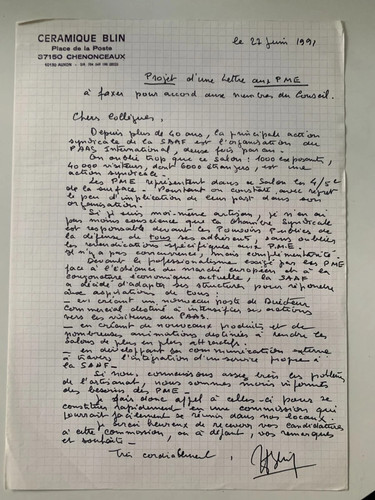 CERAMIQUE BLIN
Place de la Poste
37150 CHENONCEAUX
le 27 juin 1991
Projet d'une lettre aux PME
à faxer pour accord aux membres du Conseil.
Chers Collègues,
Depuis plus de 40 ans, la principale action
syndicale de la SAAF est l'organisation du
PAAS International, deux fois par an.
On oublie trop que ce salon : 1000 exposants,
40 000 visiteurs, dont 6000 étrangers, est une
action syndicale.
Les PME représentent dans ce Salon les 4/5è
de la surface. Pourtant on constate avec regret
le peu d'implication de leur part dans son
organisation.
Si je suis moi-même artisan, je n'en ai
pas moins conscience que la Chambre Syndicale
est responsable devant les Pouvoirs Publics de
la défense de tous ses adhérents, sans oublier
les revendications spécifiques aux P.M.E.
Il n'y a pas concurrence, mais complémentarité.
Devant le professionalisme exigé par ces PME
face à l'échéance du marché européen et à la
conjoncture économique actuelle, la SAAF
a décidé d'adapter ses structures pour répondre
aux aspirations de tous :
- en créant un nouveau poste de Directeur
commercial destiné à intensifier ses actions
vers les visiteurs du PAAS.
- en créant de nouveaux produits et de
nombreuses animations destinées à rendre les
salons de plus en plus attractifs.
- en développant son communication externe
à travers l'intégration d'un service propre à
la SAAF -
Si nous connaissons assez bien les problèmes
de l'artisanat, nous sommes moins informés
des besoins des PME.
Je fais donc appel à celles-ci pour se
constituer rapidement en une commission qui
pourrait facilement se réunir dans nos locaux.
Je serai heureux de recevoir vos candidatures
à cette commission, ou à défaut, vos remarques
et souhaits -
Très cordialement,